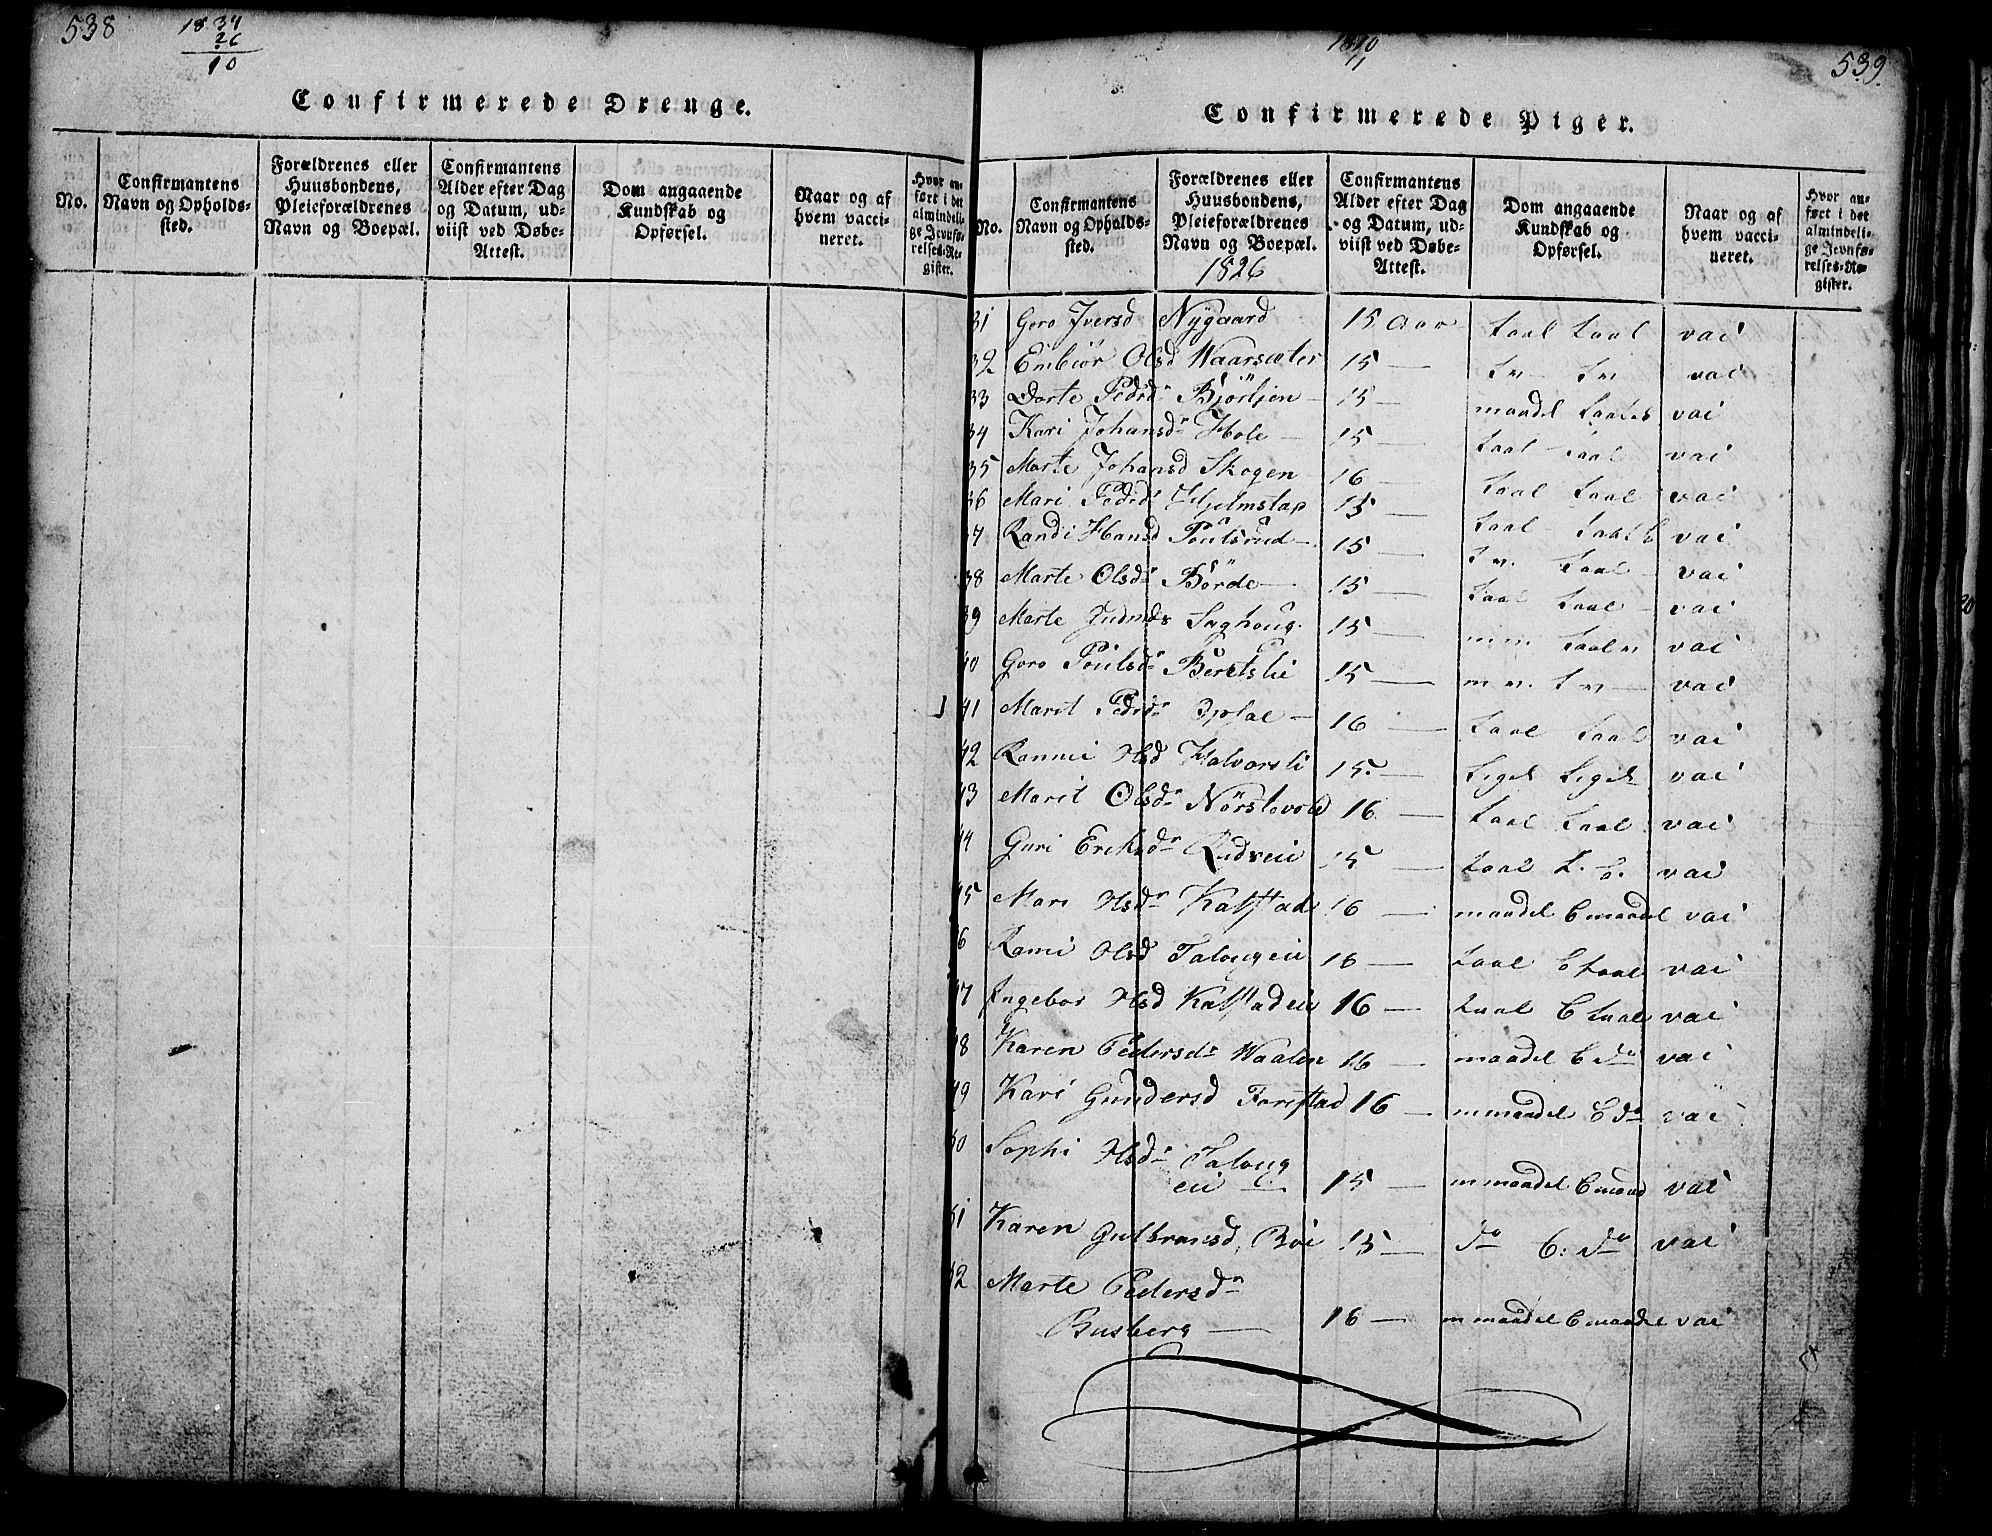 538
1834
26
10
Confirmerede Drenge.
No.
Confirmantens Navn og Opholds-sted.
Forældrenes eller Huusbondens, Pleieforældrenes Navn og Boepæl.
Confirmantens Alder efter Dag og Datum, ud-viist ved Døbe-Attest.
Dom angaaende Kundskab og Opførsel.
Naar og af hvem vacci-neret.
Hvor an-ført i det almindeli-ge Jevnfø-relses-Re-gister.
1810
11
539.
Confirmerede Piger.
No.
Confirmantens Navn og Opholds-sted.
Forældrenes eller Huusbondens, Pleieforældrenes Navn og Boepæl.
1826
Confirmantens Alder efter Dag og Datum, ud-viist ved Døbe-Attest.
Dom angaaende Kundskab og Opførsel.
Naar og af hvem vacci-neret.
Hvor an-ført i det almindeli-ge Jevnfø-relses-Re-gister.
31 Goro Iversd Nygaard 15 Aar taal taal vai
32 Embiør Olsd Waarsæter 15 — vai
33 Dorte Pedrd Bjørlien — 15 — maadel vai
34 Kari Johansd Hole — 15 — taal taal vai
35 Marte Johansd Skogen 16 — taal taal vai
36 Mari Pedrd Hjelmstad 15 — taal vai
37 Randi Hansd Poulsrud — 15 — taal — vai
38 Marte Olsd Børde — 15 — taal taal — vai
39 Marte Saghoug 15 — vai
40 Goro Poulsd Beretslie 15 — vai
41 Marit Pedrd — 16 — taal taal vai
42 Rannei Olsd Halvorsli 15. — Liget Liget vai
43 Marit Olsd Nørstevold 16 — taal taal vai
44 Guri Eriksd Rudseie 15 — taal vai
45 Mari Olsd Kalstad 16 — maadel C maadel vai
46 Olsd Talougeie 16 — taal C taal vai
47 Ingebor Olsd Kalstadeie 16 — taal C taal vai
48 Karen Pedersd Waalen 16 — maadel C do vai
49 Kari Gundersd Forstad 16 — mmaadel C do vai
50 Sophi Olsd Taloug
eie — 15 — mmaadel C maad vai
51 Karen Gulbransd, Bøe 15 — do C: do vai
52 Marte Pedersd
Busberg — 16 — mmaadel C maadel vai